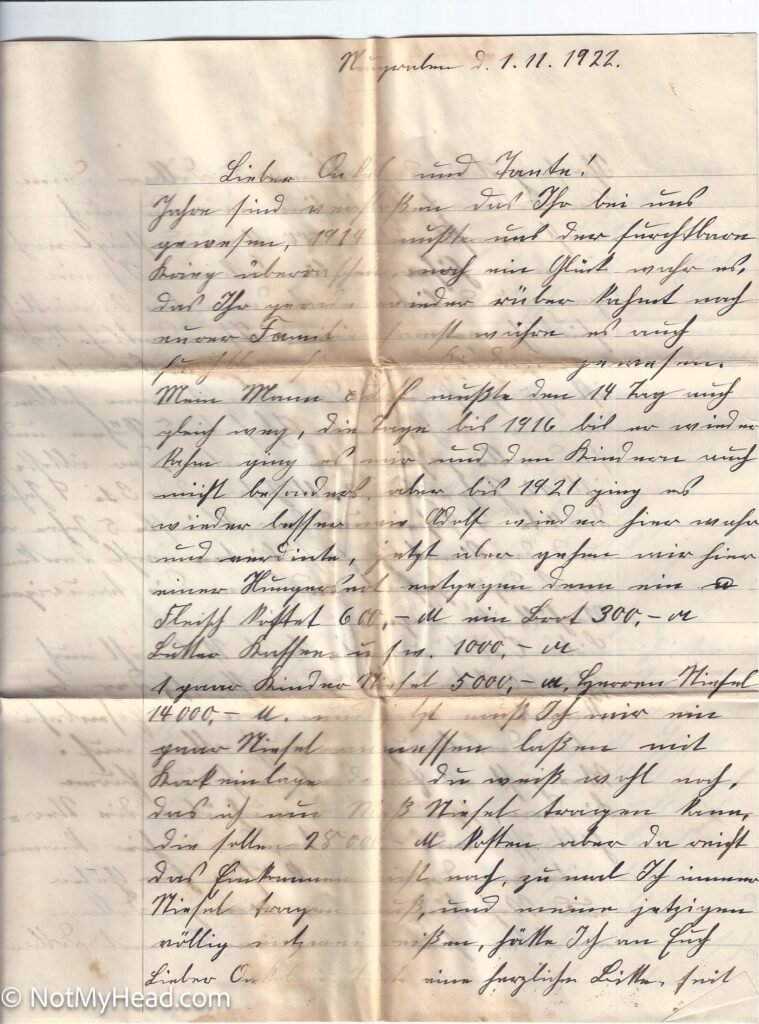 Neugraben d. 1. 11. 1922.
Lieber Onkel und Tante!
Jahre sind verfloßen das Ihr bei uns
gewesen, 1914 mußte uns der furchtbare
Krieg überraschen, noch ein Glück wahr es,
das Ihr gerade wieder rüber kahmt nach
eurer Familie sonst währe es auch
gewesen.
Mein Mann mußte den 14 Tag auch
gleich weg, die Tage bis 1916 bis er wieder
kahm ging es mir und den Kindern auch
nicht besonders, aber bis 1921 ging es
wieder besser wie Adolf wieder hier wahr
und verdinte, jetzt aber gehen wir hier
einer Hungersnot entgegen denn ein
Fleisch kostet 600,- M ein Brot 300,- M
Butter Kaffee u s w. 1000,- M
1 paar Kinder Stiefel 5000,- M, Herren Stiefel
14000,- M. muß Ich mir ein
paar Stiefel anmessen laßen mit
Korkeinlage du weiß wohl noch,
das ich nur Maß Stiefel tragen kann,
die sollen 28000,- M kosten aber da reicht
das Einkommen nicht nach, zu mal Ich immer
Stiefel tragen muß, und meine jetzigen
völlig entzwei reißen, hätte Ich an Euch
Lieber Onkel eine herzliche Bitte, seit
© NotMyHead.com